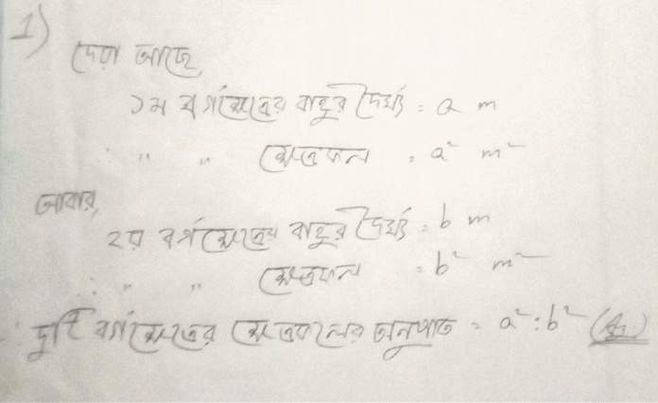 1)
দেওয়া আছে,
১ম বর্গক্ষেত্রের বাহুর দৈর্ঘ্য = a m
" " ক্ষেত্রফল = a² m²
আবার,
২য় বর্গক্ষেত্রের বাহুর দৈর্ঘ্য = b m
" " ক্ষেত্রফল = b² m²
দুটি বর্গক্ষেত্রের ক্ষেত্রফলের অনুপাত = a² : b²